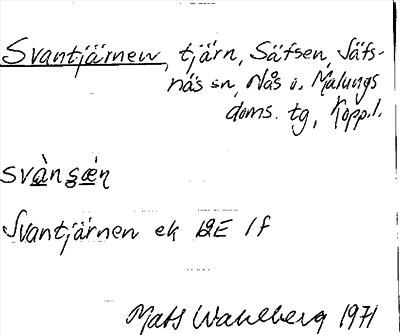 Svantjärnen, tjärn, Säfsen, Säfs-
näs sn, Nås o. Malungs
doms. tg, Kopp.l.
svànsæ̀n
Svantjärnen ek 12E 1f
Mats Wahlberg 1971